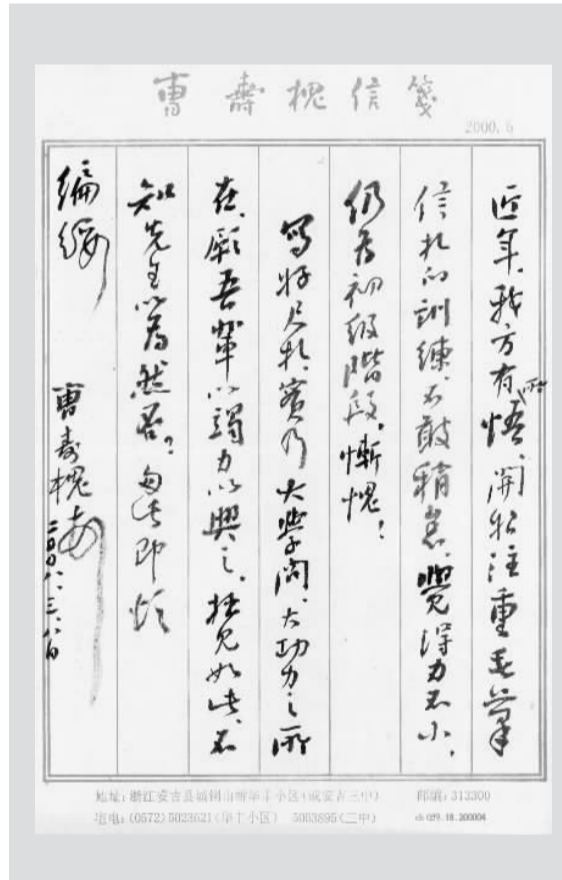 曹寿槐信笺
2000.6
近年,我方有所悟,开始注重毛笔
信札的訓練,不敢稍怠,覺得力不小,
仍为初级階段,惭愧!
写好尺札,實乃大學问、大功力之所
在,願吾輩以竭力以興之,拙见如此,不
知先生以為然否?匆此即颂
编绥
曹寿槐
二〇〇八.三.八日
地址:浙江安吉县城铜山桥华丰小区(或安吉三中) 邮编:313300
宅电:(0572)5023621(华丰小区) 5003895(三中)